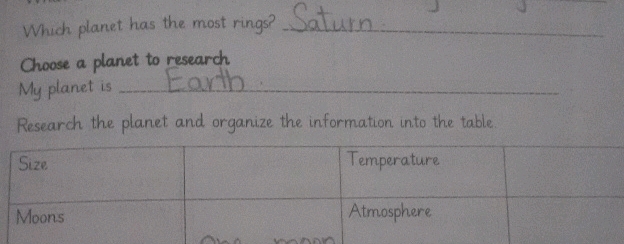 Which planet has the most rings? Saturn.
Choose a planet to research
My planet is Earth.
Research the planet and organize the information into the table.
Size Temperature
Moons Atmosphere
One moon